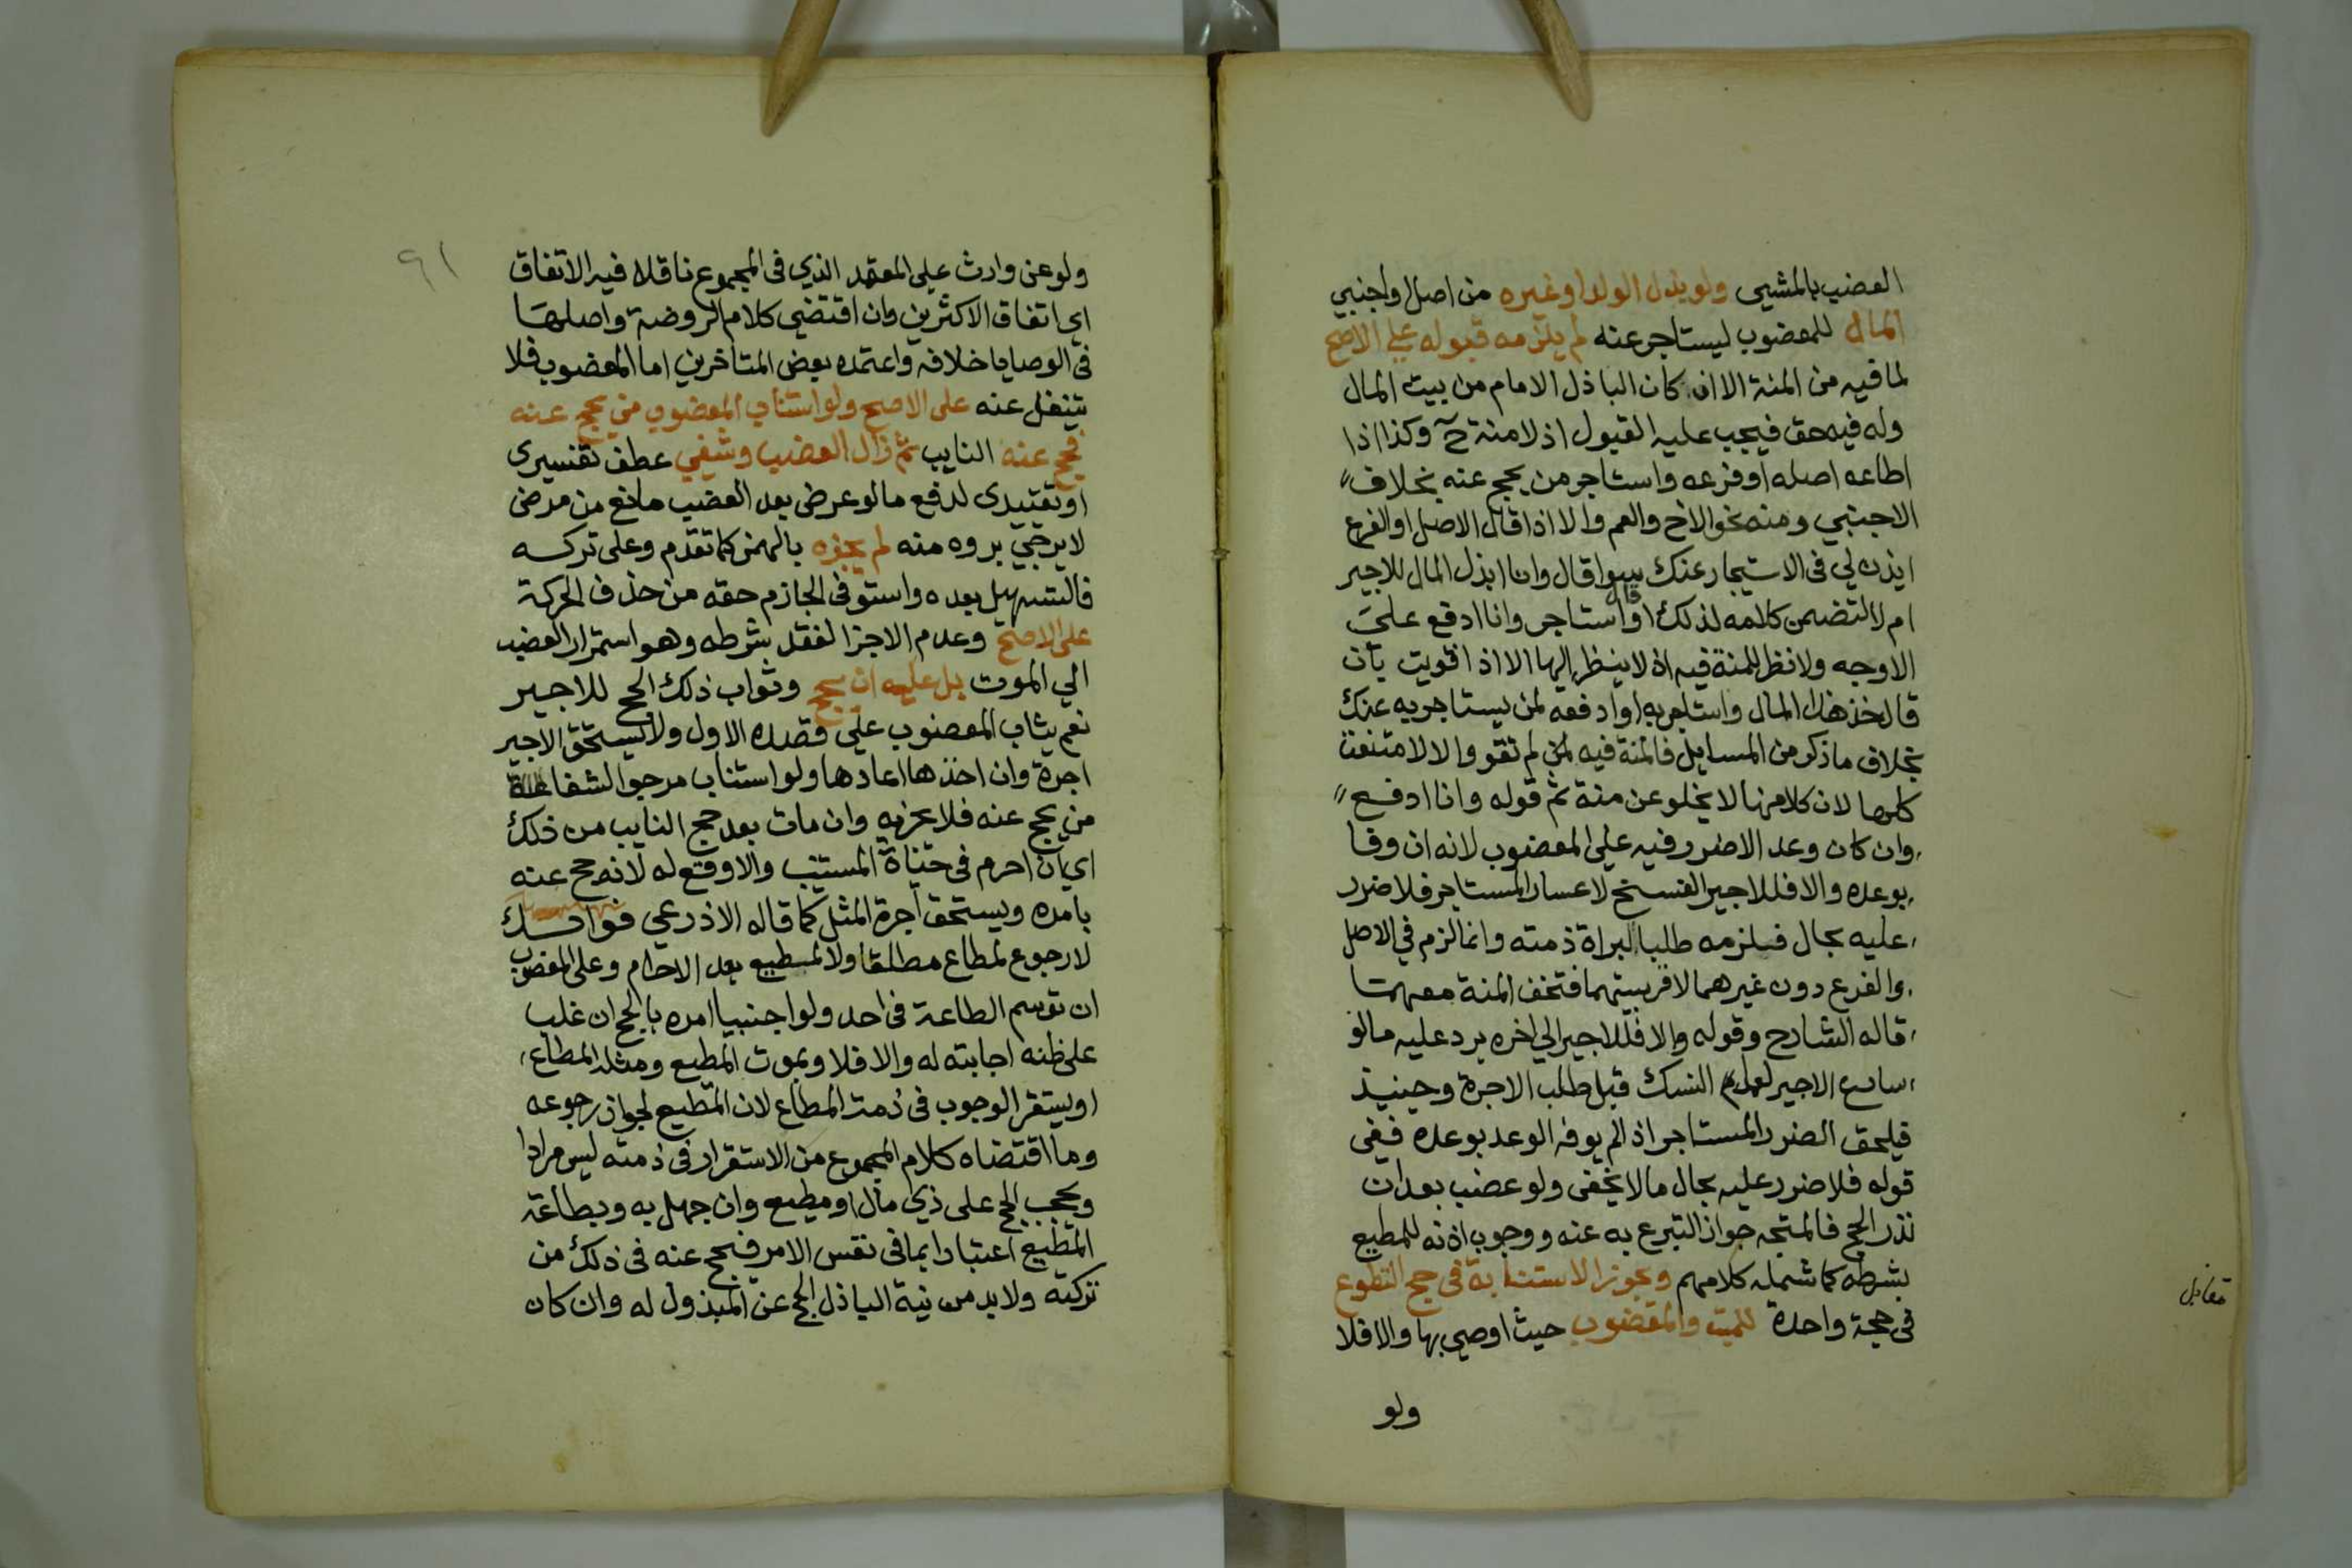 العضب بالمشي ولو بذل الولد او غيره من اصل او اجنبي
المال للمعضوب ليستاجر عنه لم يلزمه قبوله علي الاصح
لما فيه من المنة الا ان كان الباذل الامام من بيت المال
وله فيه حق فيجب عليه القبول اذ لا منة ح وكذا اذا
اطاعه اصله او فرعه واستاجر من يحج عنه بخلاف
الاجنبي ومنه نحو الاخ والعم والا اذا قال الاصل او الفرع
ايذن لي في الاستيجار عنك سوا قال وانا ابذل المال للاجير
ام لا لتضمن كلامه لذلك او قال استاجر وانا ادفع علي
الاوجه ولا نظر للمنة فيه اذ لا ينظر اليها الا اذا قويت بان
قال خذ هذا المال واستاجر به او ادفعه لمن يستاجر به عنك
بخلاف ما ذكر من المسايل فالمنة فيه لم تقو والا لامتنعت
كلها لان كلا منها لا يخلو عن منة ثم قوله وانا ادفع
وان كان وعد الا ضرر فيه علي المعضوب لانه ان وفا
بوعده والا فللاجير الفسخ لاعسار المستاجر فلا ضرر
عليه بحال فيلزمه طلبا لبراة ذمته وانما لزم في الاصل
والفرع دون غيرهما لاقربيتهما فتخف المنة معهما
قاله الشارح وقوله والا فللاجير الي اخره يرد عليه ما لو
سارع الاجير لعمل النسك قبل طلب الاجرة وحينيذ
فيلحق الضرر المستاجر اذ لم يوف الوعد بوعده ففي
قوله فلا ضرر عليه بحال ما لا يخفى ولو عضب بعد ان
نذر الحج فالمتجه جواز التبرع به عنه ووجوب اذنه للمطيع
بشرطه كما شمله كلامهم وتجوز الاستنابة في حج التطوع
في حجة واحدة للميت والمعضوب حيث اوصي بها والا فلا
ولو
مقابل
٩١
ولو عن وارث علي المعتمد الذي في المجموع ناقلا فيه الاتفاق
اي اتفاق الاكثرين وان اقتضي كلام الروضة واصلها
في الوصايا خلافه واعتمده بعض المتاخرين اما المعضوب فلا
يتنفل عنه على الاصح ولو استناب المعضوب من يحج عنه
فحج عنه النايب ثم زال العضب وشفي عطف تفسيرى
او تقييدى لدفع ما لو عرض بعد العضب مانع من مرض
لا يرجي بروه منه لم يجزه بالهمز كما تقدم وعلى تركه
فالتسهيل بعده واستوفى الجازم حقه من حذف الحركة
على الاصح وعدم الاجزا لفقد شرطه وهو استمرار العضب
الي الموت بل عليه ان يحج وثواب ذلك الحج للاجير
نعم يثاب المعضوب علي قصده الاول ولا يستحق الاجير
اجرة وان اخذها اعادها ولو استناب مرجو الشفا
من يحج عنه فلا يجزيه وان مات بعد حج النايب من ذلك
اي بان احرم في حياة المستنيب والا وقع له لانه حج عنه
بامره ويستحق اجرة المثل كما قاله الاذرعي فوا
لا رجوع لمطاع مطلقا ولا لمطيع بعد الاحرام وعلى المعضوب
ان توسم الطاعة في احد ولو اجنبيا امره بالحج ان غلب
على ظنه اجابته له والا فلا وبموت المطيع ومثله المطاع
او يستقر الوجوب في ذمت المطاع لان المطيع لجواز رجوعه
وما اقتضاه كلام المجموع من الاستقرار في ذمته ليس مرادا
ويجب الحج على ذي مال او مطيع وان جهل به وبطاعة
المطيع اعتبارا بما في نفس الامر فيحج عنه في ذلك من
تركته ولا بد من نية الباذل الحج عن المبذول له وان كان